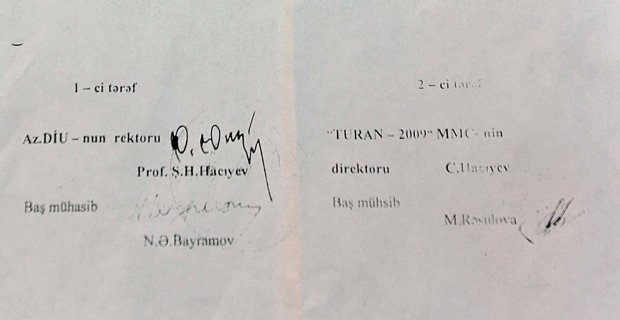 1 – ci tərəf
Az.DİU – nun rektoru
Prof. Ş.H.Hacıyev
Baş mühasib
N.Ə.Bayramov
2 – ci tərəf
"TURAN – 2009" MMC- nin
direktoru C.Hacıyev
Baş mühsib
M.Rəsulova